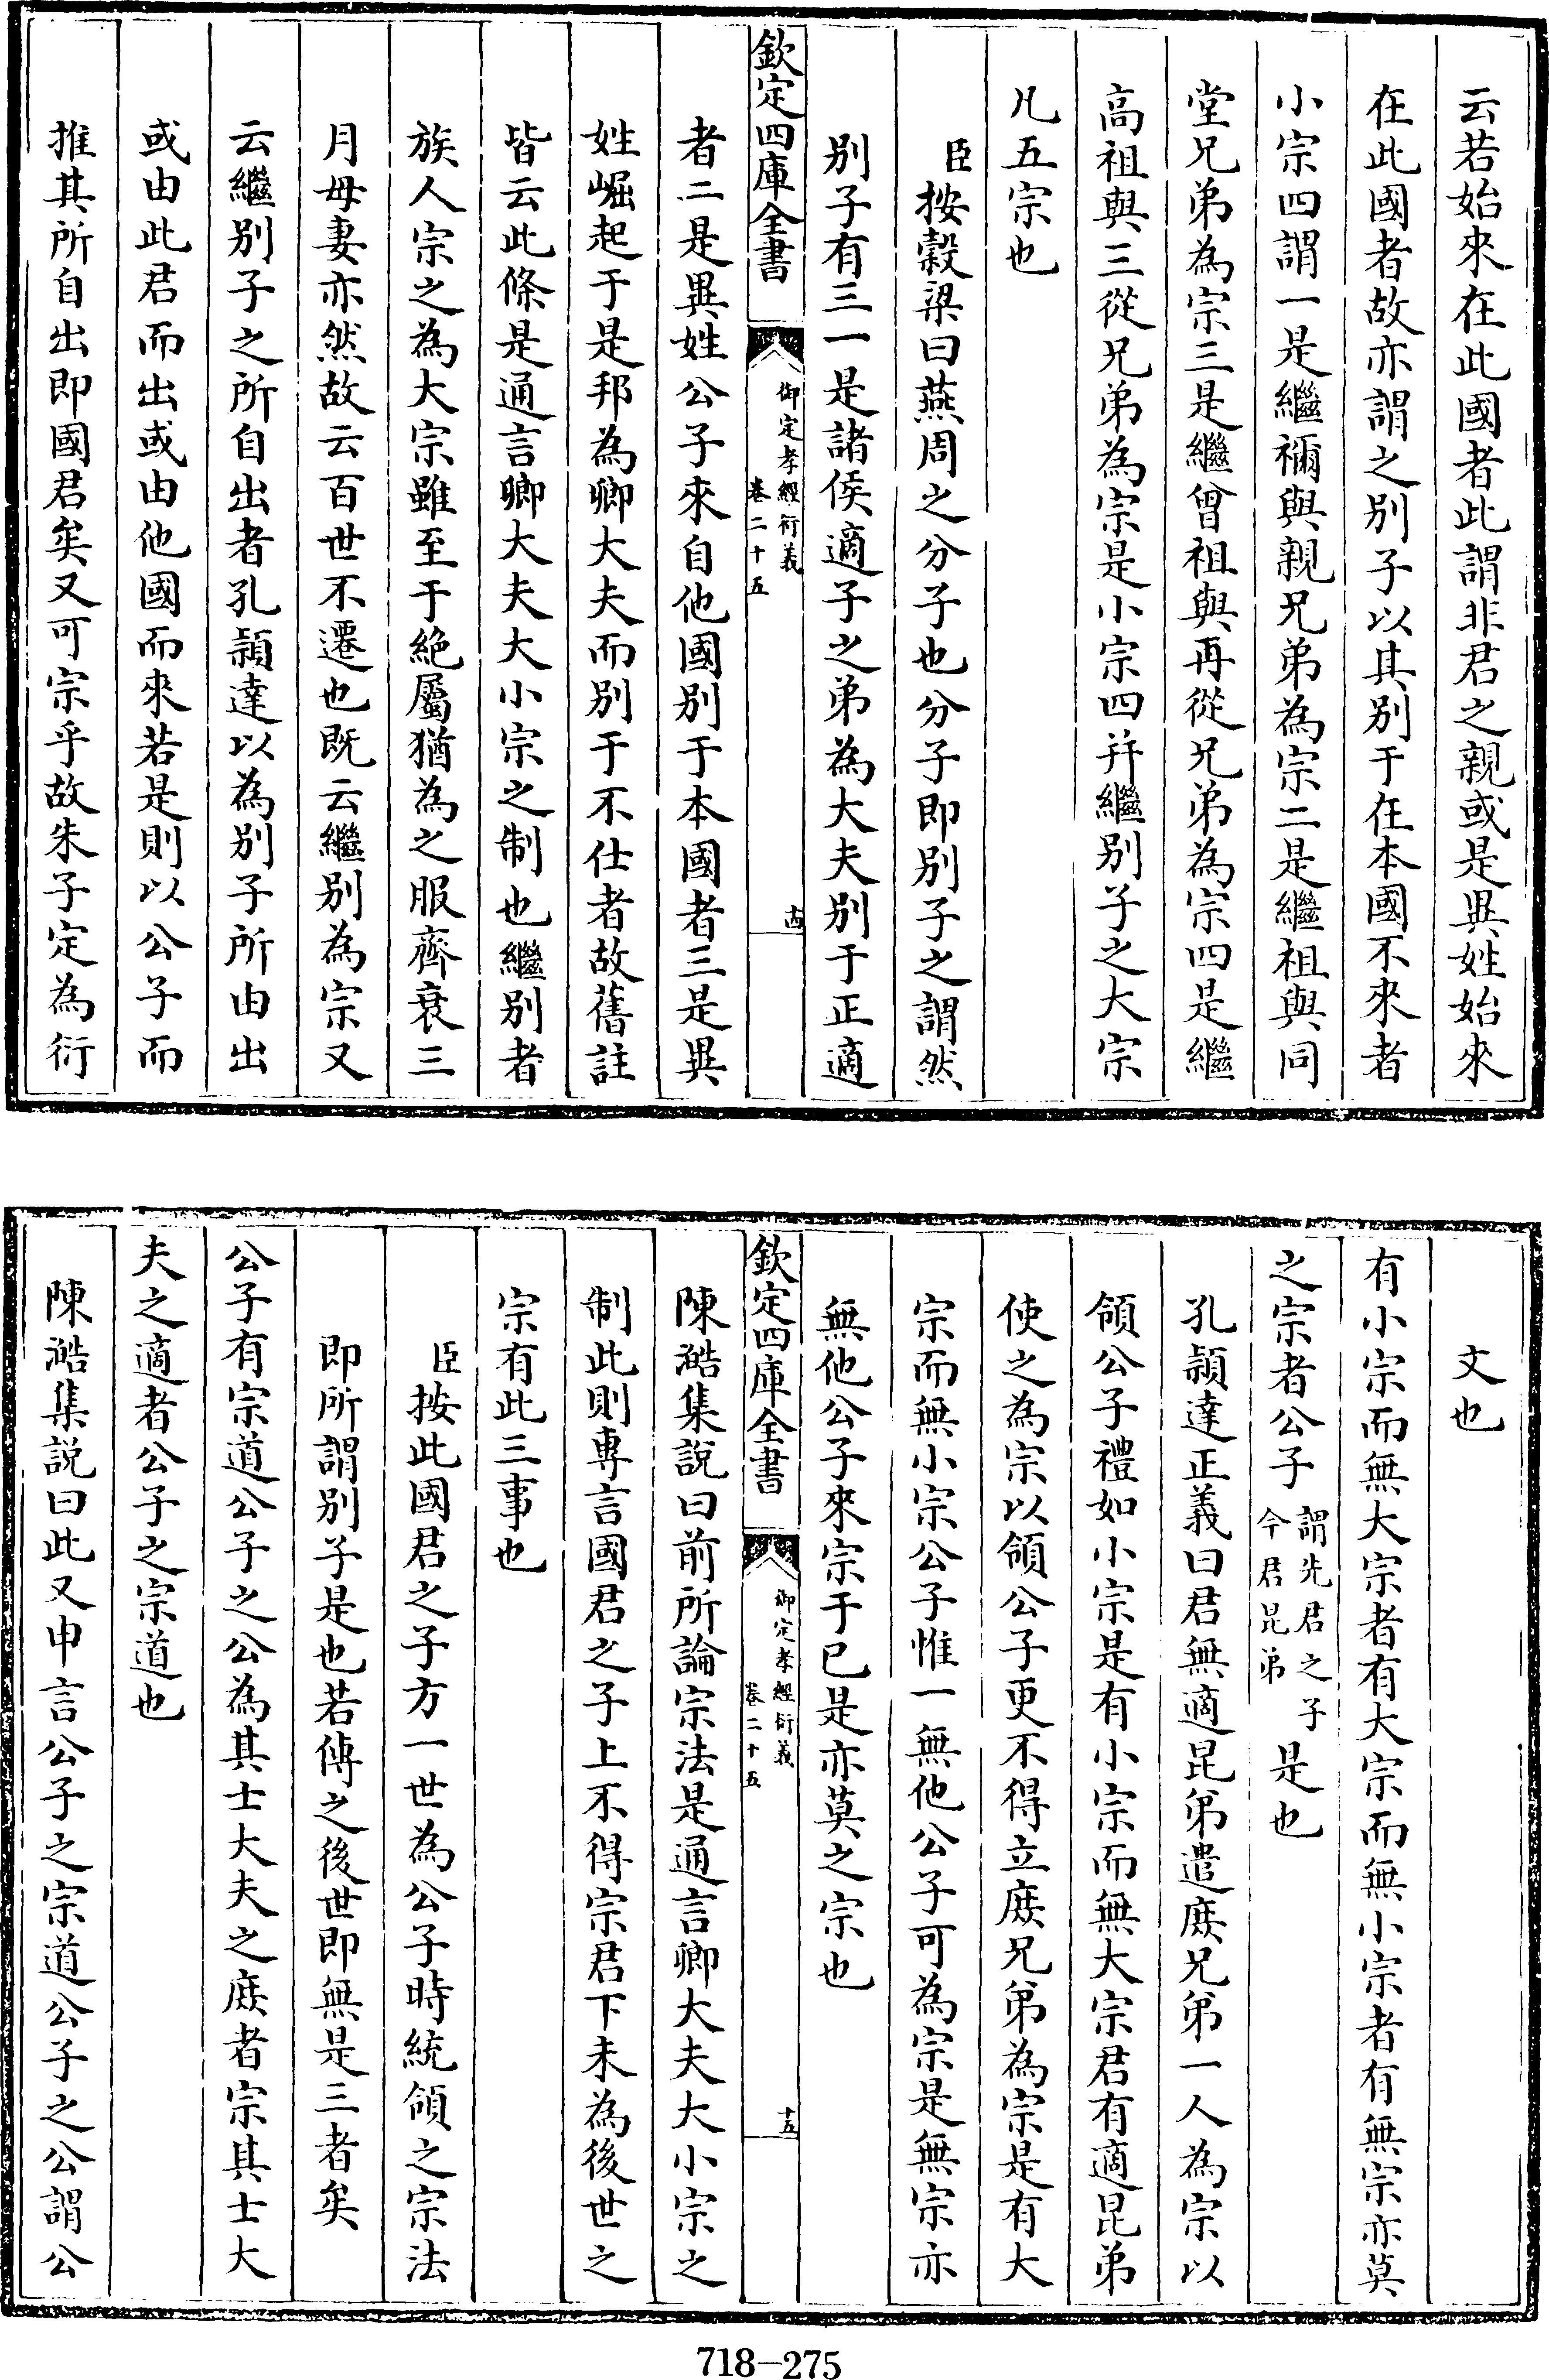 云若始來在此國者此謂非君之親或是異姓始來
在此國者故亦謂之別子以其別于在本國不來者
小宗四謂一是繼禰與親兄弟為宗二是繼祖與同
堂兄弟為宗三是繼曾祖與再從兄弟為宗四是繼
高祖與三從兄弟為宗是小宗四并繼別子之大宗
凡五宗也
臣按穀梁曰燕周之分子也分子即別子之謂然
別子有三一是諸侯適子之弟為大夫別于正適
欽定四庫全書
御定孝經衍義
卷二十五
十四
者二是異姓公子來自他國別于本國者三是異
姓崛起于是邦為卿大夫而別于不仕者故舊註
皆云此條是通言卿大夫大小宗之制也繼別者
族人宗之為大宗雖至于絶屬猶為之服齊衰三
月母妻亦然故云百世不遷也既云繼別為宗又
云繼別子之所自出者孔頴達以為別子所由出
或由此君而出或由他國而來若是則以公子而
推其所自出即國君矣又可宗乎故朱子定為衍
文也
有小宗而無大宗者有大宗而無小宗者有無宗亦莫
之宗者公子謂先君之子今君昆弟是也
孔頴達正義曰君無適昆弟遣庶兄弟一人為宗以
領公子禮如小宗是有小宗而無大宗君有適昆弟
使之為宗以領公子更不得立庶兄弟為宗是有大
宗而無小宗公子惟一無他公子可為宗是無宗亦
無他公子來宗于已是亦莫之宗也
欽定四庫全書
御定孝經衍義
卷二十五
十五
陳澔集説曰前所論宗法是通言卿大夫大小宗之
制此則專言國君之子上不得宗君下未為後世之
宗有此三事也
臣按此國君之子方一世為公子時統領之宗法
即所謂別子是也若傳之後世即無是三者矣
公子有宗道公子之公為其士大夫之庶者宗其士大
夫之適者公子之宗道也
陳澔集説曰此又申言公子之宗道公子之公謂公
718-275